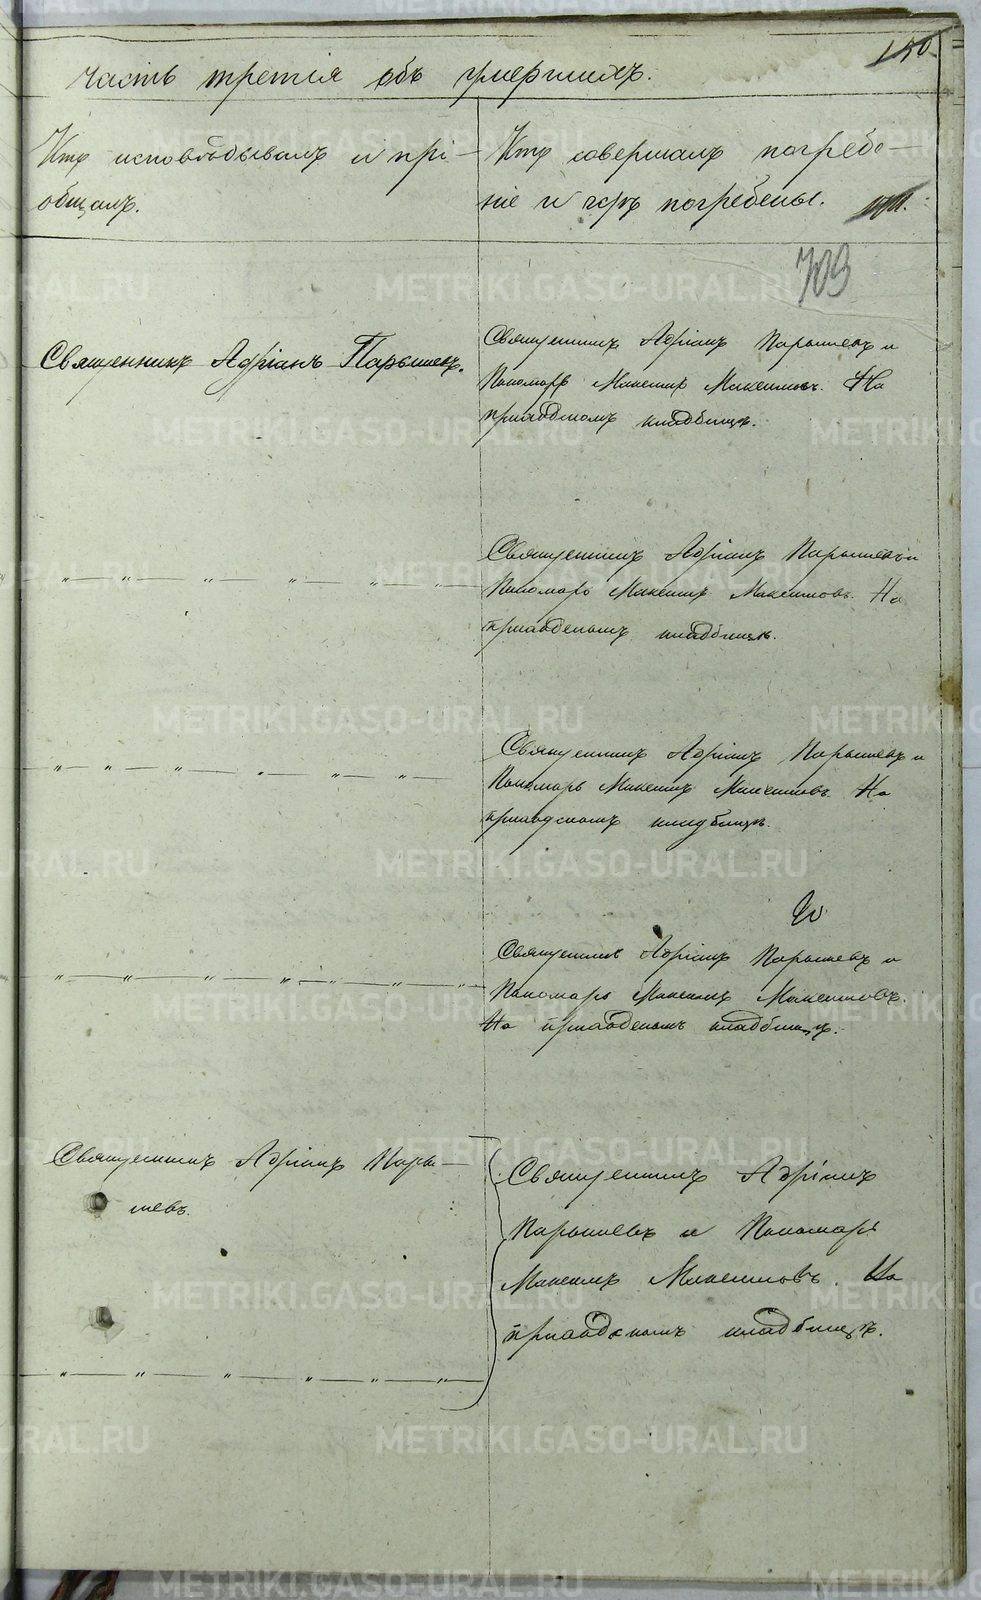 150.
часть третія объ умершихъ.
Кто исповѣдывалъ и прі-
общалъ.
Кто совершалъ погребе-
ніе и гдѣ погребены.
703
Священникъ Адріанъ Парышевъ.
Священникъ Адріанъ Парышевъ и
Пономарь Максимъ Максимовъ. На
приходскомъ кладбищѣ.
„ — „ — „ — „ — „ — „
Священникъ Адріанъ Парышевъ и
Пономарь Максимъ Максимовъ. На
приходскомъ кладбищѣ.
„ — „ — „ — „ — „ — „
Священникъ Адріанъ Парышевъ и
Пономарь Максимъ Максимовъ. На
приходскомъ кладбищѣ.
„ — „ — „ — „ — „ — „ — „
Священникъ Адріанъ Парышевъ и
Пономарь Максимъ Максимовъ.
На приходскомъ кладбищѣ.
Священникъ Адріанъ Пары-
шевъ.
„ — „ — „ — „ — „ — „
Священникъ Адріанъ
Парышевъ и Пономарь
Максимъ Максимовъ. На
приходскомъ кладбищѣ.
METRIKI.GASO-URAL.RU